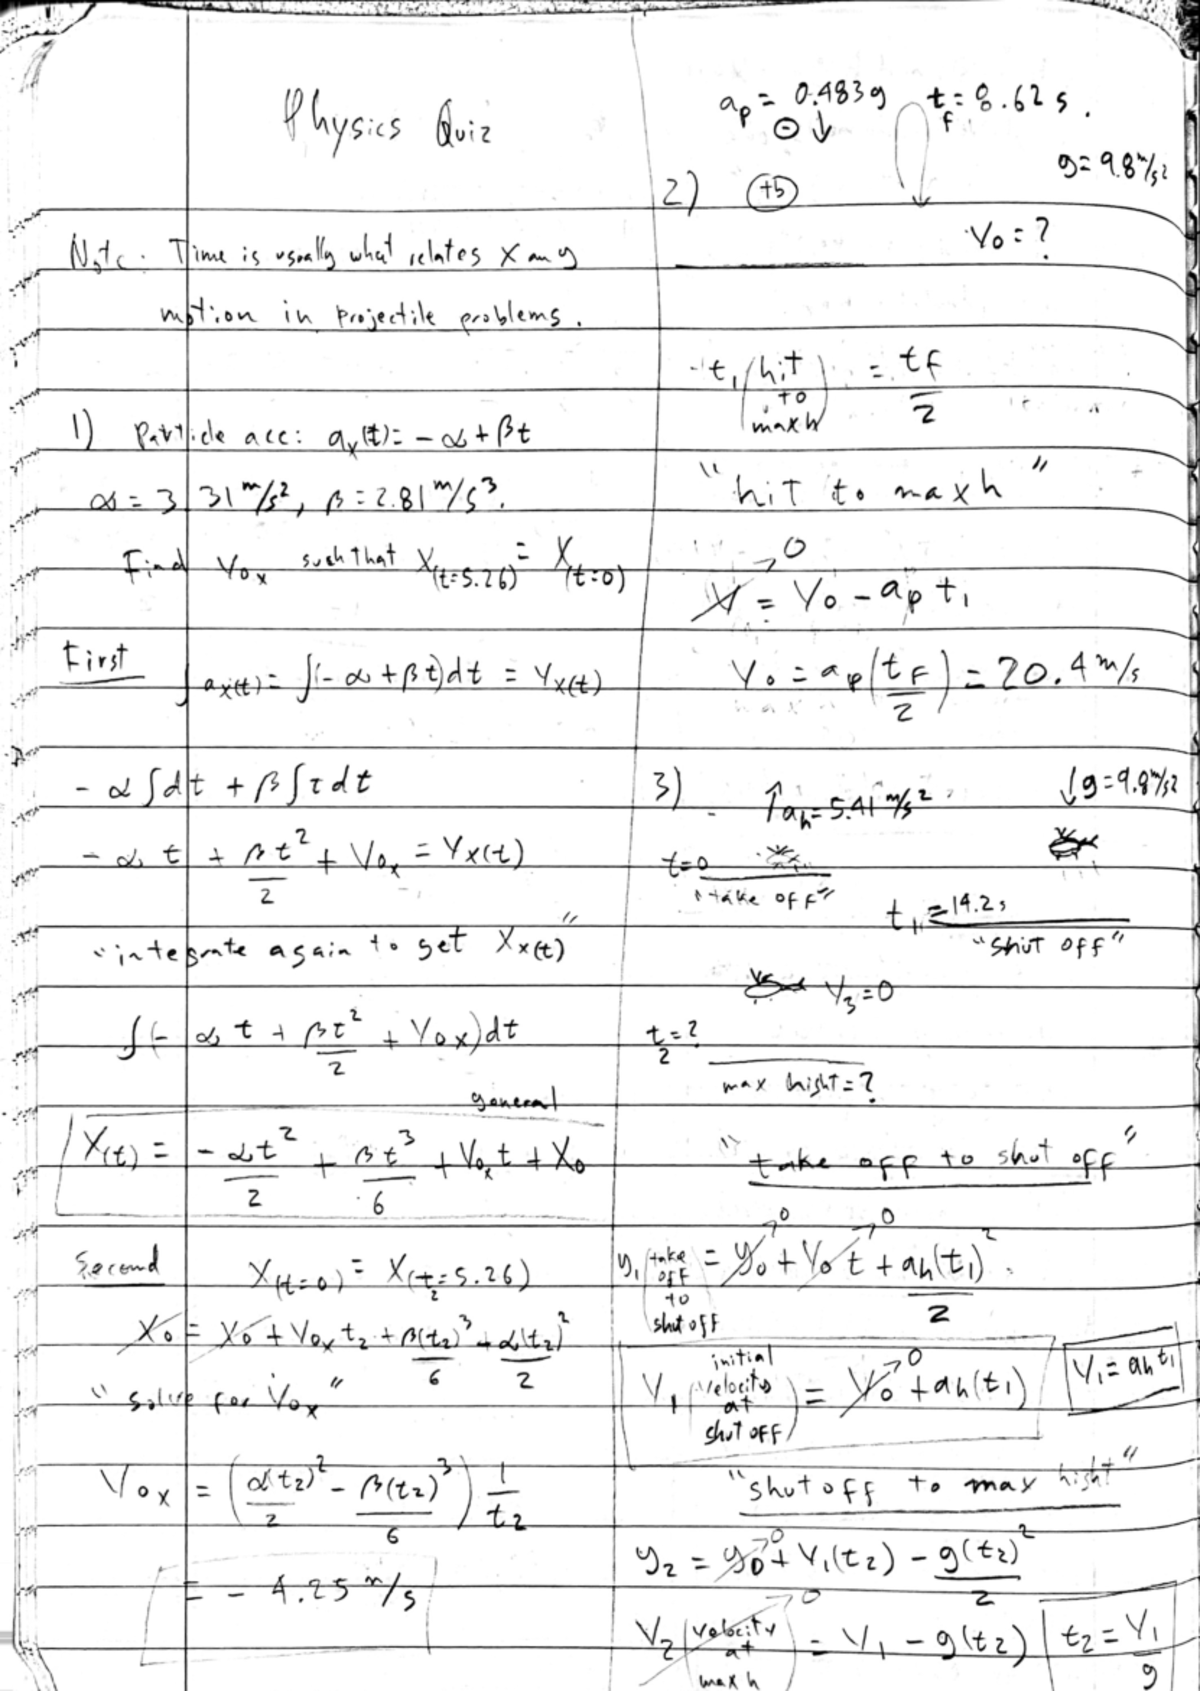 Physics Quiz
Note: Time is usually what relates X any
motion in projectile problems.
1) Particle acc: aₓ(t) = -α + βt
α = 3.31 m/s², β = 2.81 m/s³.
Find V₀ₓ such that X(t=5.26) = X(t=0)
First ∫aₓ(t) = ∫(-α + βt)dt = Vₓ(t)
-α∫dt + β∫t dt
-αt + βt²/2 + V₀ₓ = Vₓ(t)
"integrate again to get Xₓ(t)"
∫(-αt + βt²/2 + V₀ₓ)dt
general
X(t) = -αt²/2 + βt³/6 + V₀ₓt + X₀
Second X(t=0) = X(t₂=5.26)
X₀ = X₀ + V₀ₓt₂ + β(t₂)³/6 - α(t₂)²/2
"solve for V₀ₓ"
V₀ₓ = (α(t₂)²/2 - β(t₂)³/6) 1/t₂
= -4.25 m/s
aₚ = 0.483g t_f = 8.62 s.
⊖↓
g = 9.8 m/s²
2) +5
V₀ = ?
t₁ (hit to max h) = t_f/2
"hit to max h"
V = V₀ - aₚt₁ → 0
V₀ = aₚ(t_f/2) = 20.4 m/s
3) ↑aₕ = 5.41 m/s² ↓g = 9.8 m/s²
t=0
"take off"
t₁ = 14.2s
"shut off"
V₃ = 0
t₂ = ?
max hight = ?
"take off to shut off"
y₁ (take off to shut off) = y₀ → 0 + V₀t → 0 + aₕ(t₁)²/2
V₁ (initial velocity at shut off) = V₀ → 0 + aₕ(t₁) V₁ = aₕt₁
"shut off to max hight"
y₂ = y₀ → 0 + V₁(t₂) - g(t₂)²/2
V₂ (velocity at max h) → 0 = V₁ - g(t₂) t₂ = V₁/g